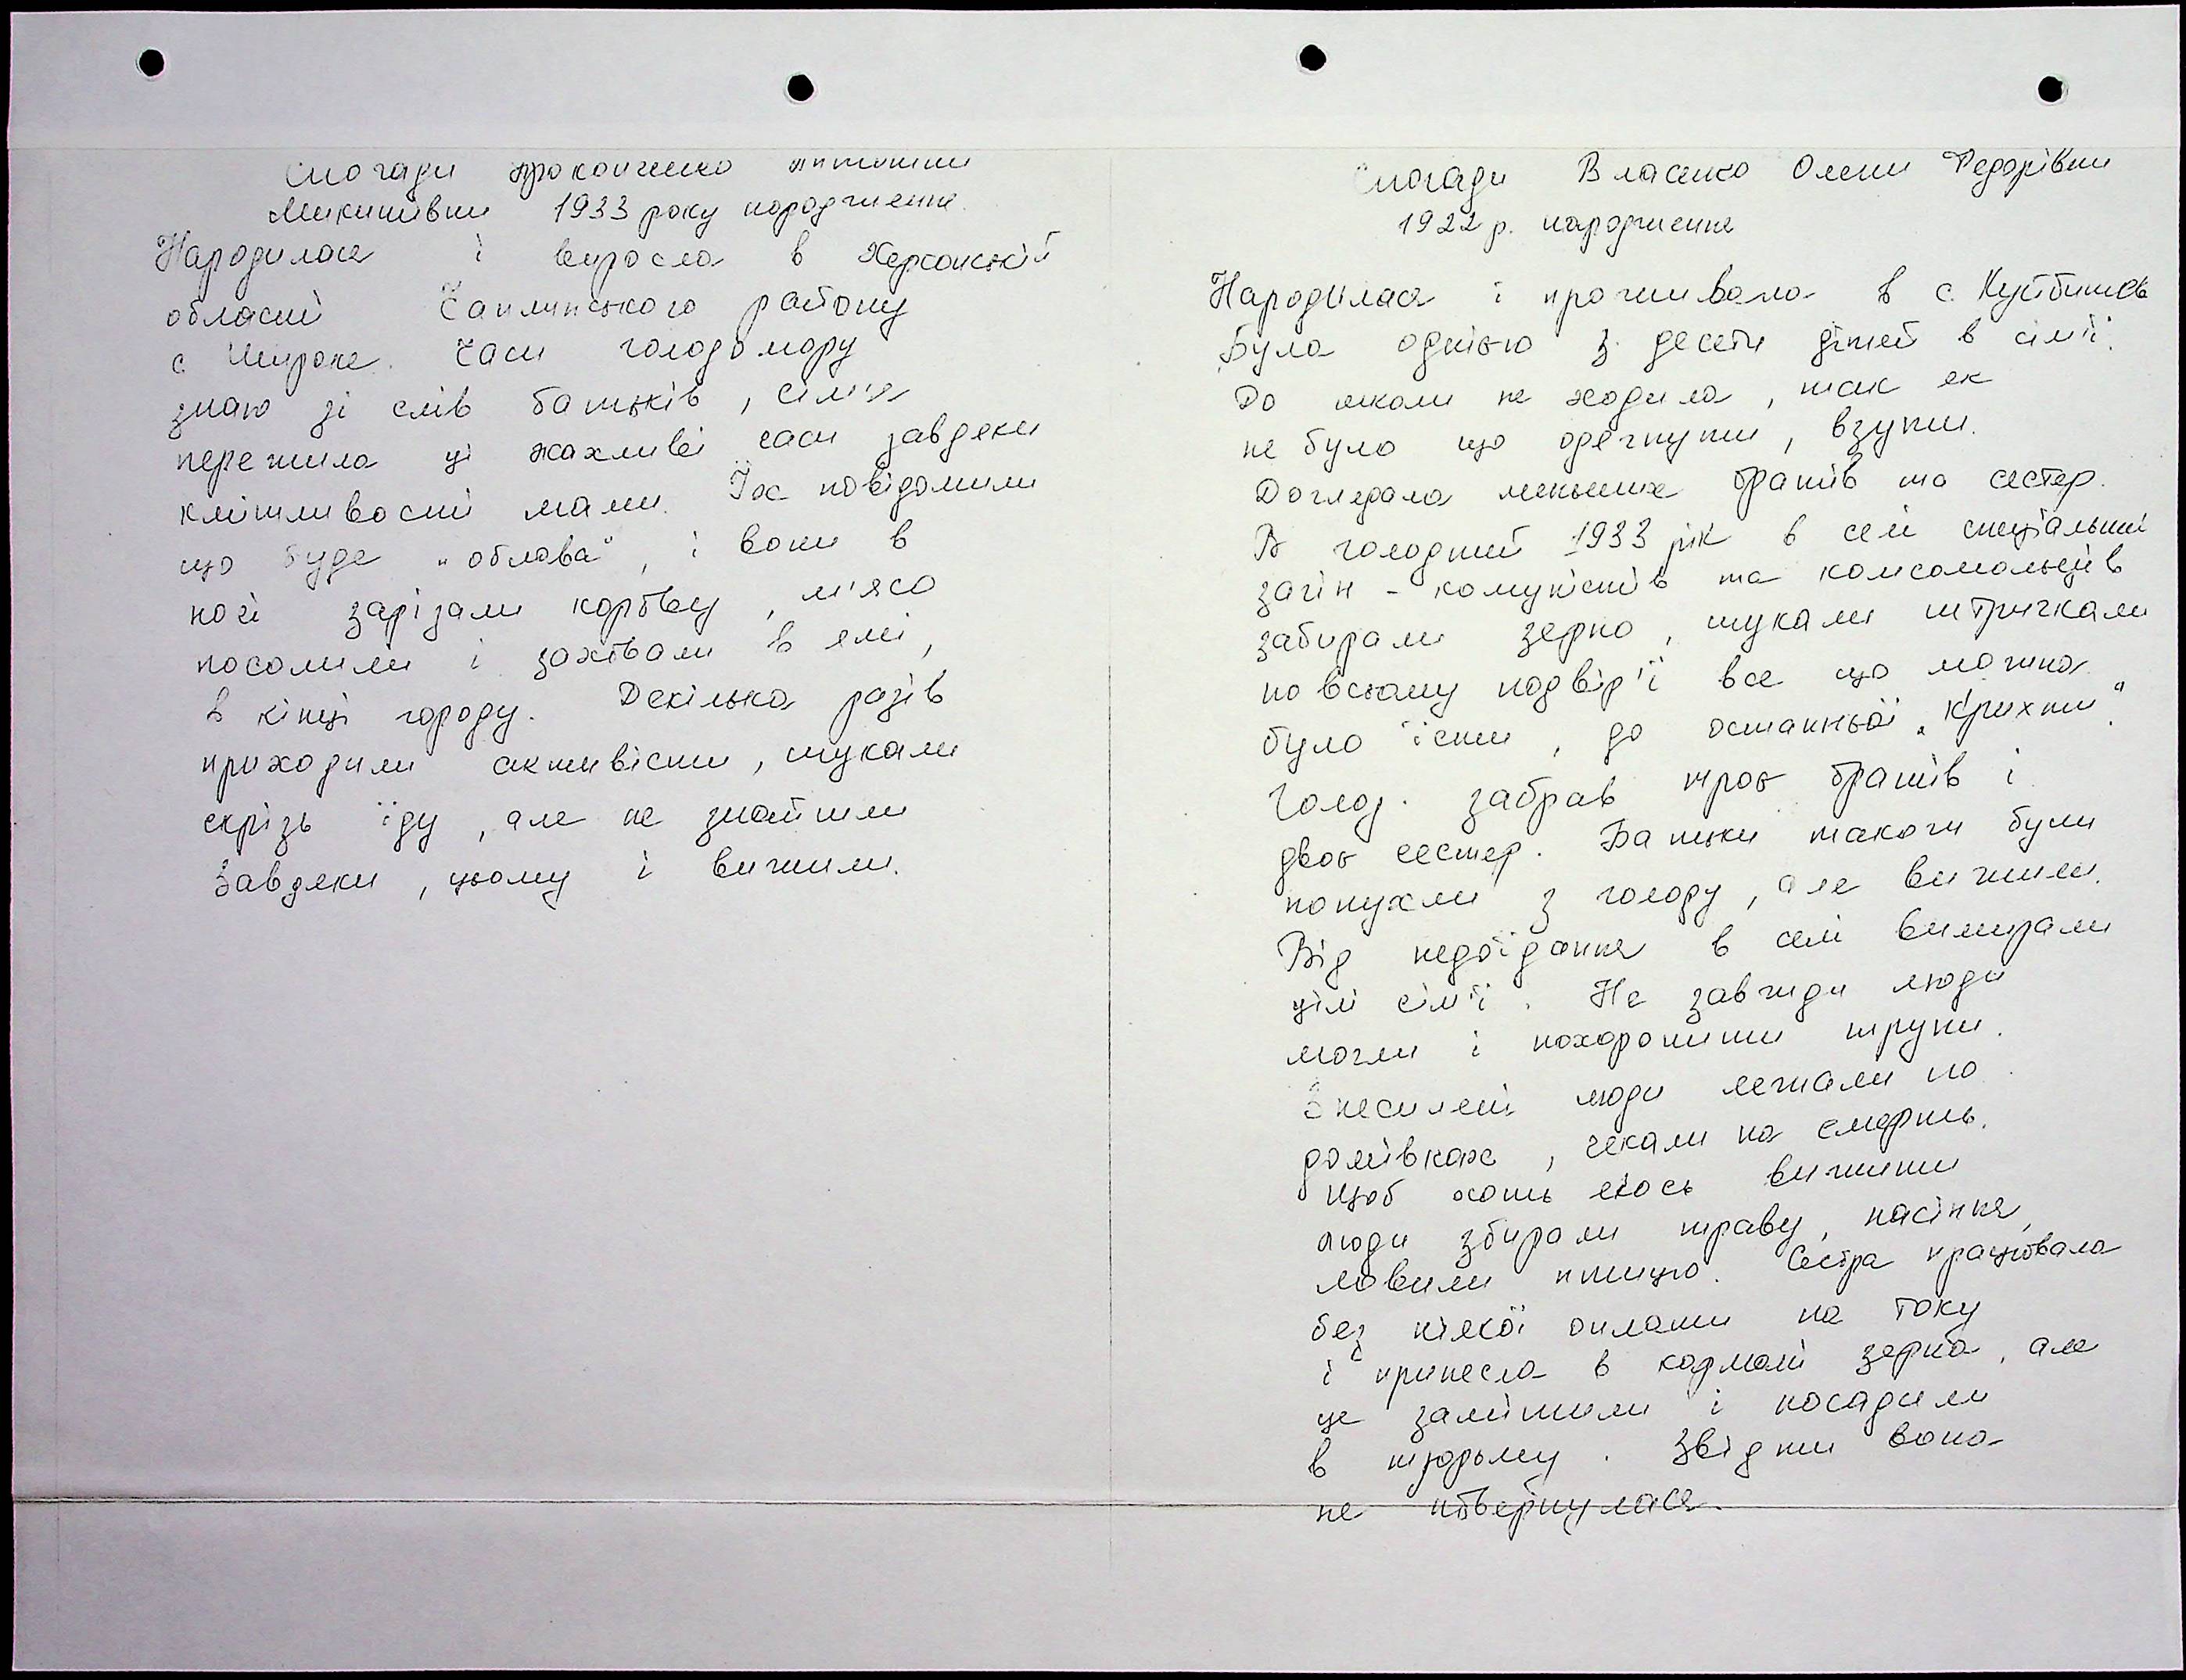 Спогади Прокопченко
Микитівни 1933 року народження.
Народилася і виросла в Херсонській
області Чаплинського району
с. Широке. Часи голодомору
знаю зі слів батьків, сім'я
пережила ці жахливі часи завдяки
кмітливості мами. Їх повідомили
що буде "облова", і вони в
ночі зарізали корову, м'ясо
посолили і заховали в ямі,
в кінці городу. Декілька разів
приходили активісти, шукали
скрізь їду, але не знайшли
Завдяки, цьому і вижили.
Спогади Власенко Олени Федорівни
1922 р. народження
Народилася і проживала в с. Куйбишев
Була однією з десяти дітей в сім'ї.
До школи не ходила, так як
не було що одягнути, взути.
Доглядала меньших братів та сестер.
В голодний 1933 рік в селі спеціальний
загін - комуністів та комсомольців
забирали зерно, шукали штричками
по всьому подвір'ї все що можна
було їсти, до останньої "крихти".
Голод забрав троє братів і
двоє сестер. Батьки також були
попухли з голоду, але вижили.
Від недоїдання в селі вимирали
цілі сім'ї. Не завжди люди
могли і похоронити трупи.
Знесилені люди лежали по
домівках, чекали на смерть.
Щоб хоть якось вижити
люди збирали траву, насіння,
ловили птицю. Сестра працювала
без ніякої оплати на току
і принесла в кармані зерна, але
це замітили і посадили
в тюрьму. Звідти вона
не повернулася.